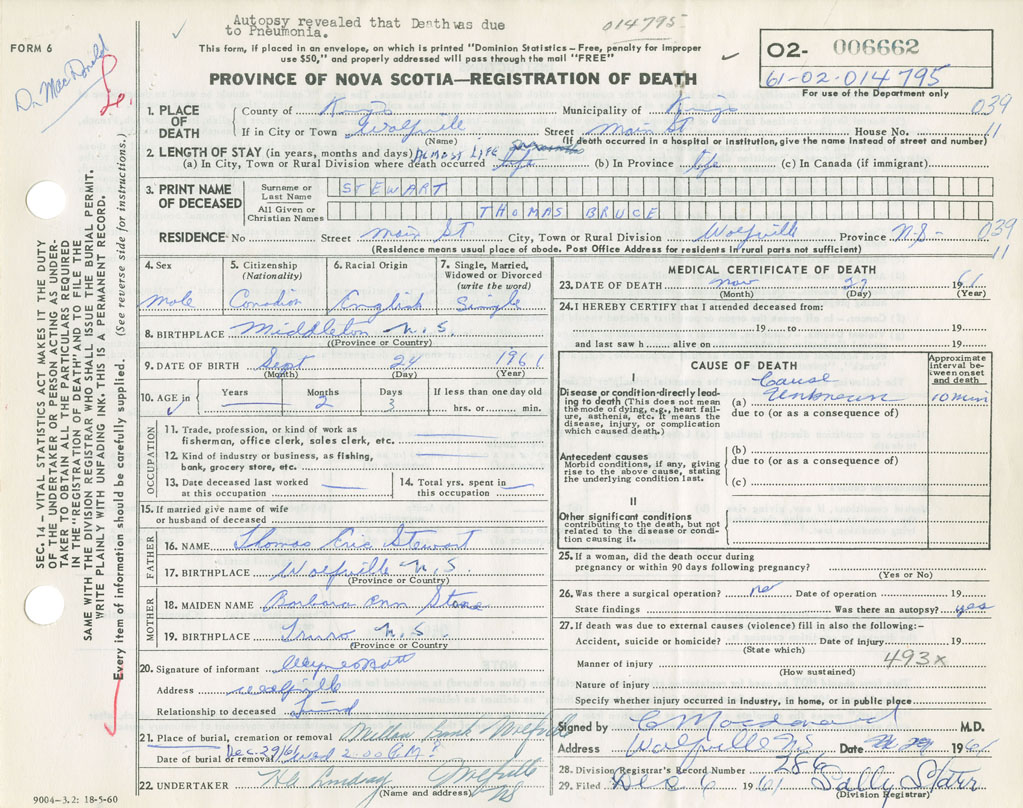 Autopsy revealed that Death was due
to Pneumonia.
014795
FORM 6
Dr. MacDonald
This form, if placed in an envelope, on which is printed "Dominion Statistics—Free, penalty for improper
use $50," and properly addressed will pass through the mail "FREE"
O2- 006662
61-02-014795
For use of the Department only
PROVINCE OF NOVA SCOTIA—REGISTRATION OF DEATH
1. PLACE OF DEATH
County of Kings Municipality of Kings 039
If in City or Town Wolfville (Name) Street Main St House No. 11
(If death occurred in a hospital or institution, give the name instead of street and number)
2. LENGTH OF STAY (in years, months and days) Almost Life
(a) In City, Town or Rural Division where death occurred life (b) In Province life (c) In Canada (if immigrant)
3. PRINT NAME OF DECEASED
Surname or Last Name STEWART
All Given or Christian Names THOMAS BRUCE
RESIDENCE No Street Main St City, Town or Rural Division Wolfville Province N.S. 039
(Residence means usual place of abode. Post Office Address for residents in rural parts not sufficient) 11
4. Sex
Male
5. Citizenship (Nationality)
Canadian
6. Racial Origin
English
7. Single, Married, Widowed or Divorced (write the word)
Single
8. BIRTHPLACE Middleton N.S.
(Province or Country)
9. DATE OF BIRTH Sept 24 1961
(Month) (Day) (Year)
10. AGE in Years Months 2 Days 3 If less than one day old hrs. or min.
OCCUPATION
11. Trade, profession, or kind of work as
fisherman, office clerk, sales clerk, etc.
12. Kind of industry or business, as fishing,
bank, grocery store, etc.
13. Date deceased last worked
at this occupation
14. Total yrs. spent in
this occupation
15. If married give name of wife
or husband of deceased
FATHER
16. NAME Thomas Eric Stewart
17. BIRTHPLACE Wolfville N.S.
(Province or Country)
MOTHER
18. MAIDEN NAME Barbara Ann Stone
19. BIRTHPLACE Truro N.S.
(Province or Country
20. Signature of informant
Address Wolfville
Relationship to deceased Friend
21. Place of burial, cremation or removal Willow Bank Wolfville
Date of burial or removal
22. UNDERTAKER Lindsay Wolfville NS
(Name and address)
9004-3.2: 18-5-60
MEDICAL CERTIFICATE OF DEATH
23. DATE OF DEATH Nov 27 1961
(Month) (Day) (Year)
24. I HEREBY CERTIFY that I attended deceased from:
19 to 19
and last saw h alive on 19
CAUSE OF DEATH
Approximate interval between onset and death
I
Disease or condition directly leading to death (This does not mean the mode of dying, e.g., heart failure, asthenia, etc. It means the disease, injury, or complication which caused death.)
(a) Cause Unknown 10 min
due to (or as a consequence of)
Antecedent causes
Morbid conditions, if any, giving rise to the above cause, stating the underlying condition last.
(b)
due to (or as a consequence of)
(c)
II
Other significant conditions
contributing to the death, but not related to the disease or condition causing it.
25. If a woman, did the death occur during
pregnancy or within 90 days following pregnancy?
(Yes or No)
26. Was there a surgical operation? no Date of operation 19
State findings Was there an autopsy? yes
27. If death was due to external causes (violence) fill in also the following:—
Accident, suicide or homicide? Date of injury 19
(State which)
Manner of injury 493x
(How sustained)
Nature of injury
Specify whether injury occurred in industry, in home, or in public place
Signed by C Macdonald M.D.
Address Wolfville NS Date 1961
28. Division Registrar's Record Number 286
29. Filed Dec 6 1961 Sally Starr
(Division Registrar)
SEC. 14—VITAL STATISTICS ACT MAKES IT THE DUTY
OF THE UNDERTAKER OR PERSON ACTING AS UNDER-
TAKER TO OBTAIN ALL THE PARTICULARS REQUIRED
IN THE "REGISTRATION OF DEATH" AND TO FILE THE
SAME WITH THE DIVISION REGISTRAR WHO SHALL ISSUE THE BURIAL PERMIT.
WRITE PLAINLY WITH UNFADING INK. THIS IS A PERMANENT RECORD.
Every item of information should be carefully supplied. (See reverse side for instructions.)